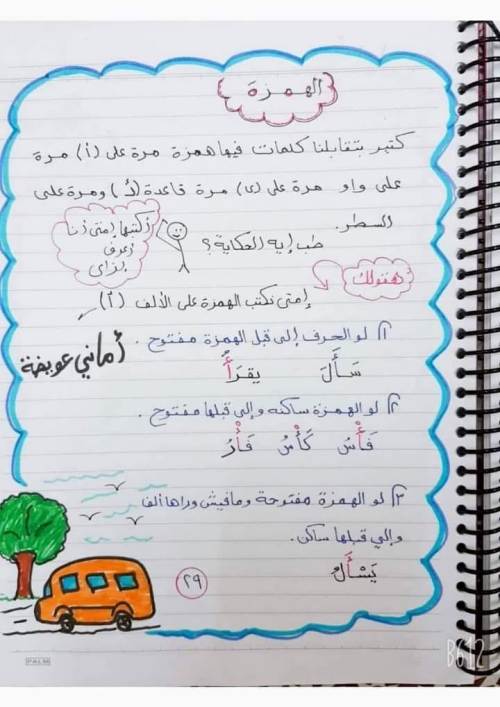 الهمزة
كتير بتقابلنا كلمات فيها همزة مرة على (أ) مرة
على واو مرة على (ى) مرة قاعدة (ئـ) ومرة على
السطر.
طب إيه الحكاية؟
أكتبها إمتى أنا
أعرف
إزاى
هقولك
إمتى نكتب الهمزة على الألف (أ)
١) لو الحرف إلى قبل الهمزة مفتوح.
سَـأَلَ يقرَأُ
أماني عويضة
٢) لو الهمزة ساكنه وإلى قبلها مفتوح.
فَأْسُ كَأْسُ فَأْرُ
٣) لو الهمزة مفتوحة ومافيش وراها ألف
وإلي قبلها ساكن.
يَسْأَل
٢٩
PALM
B612